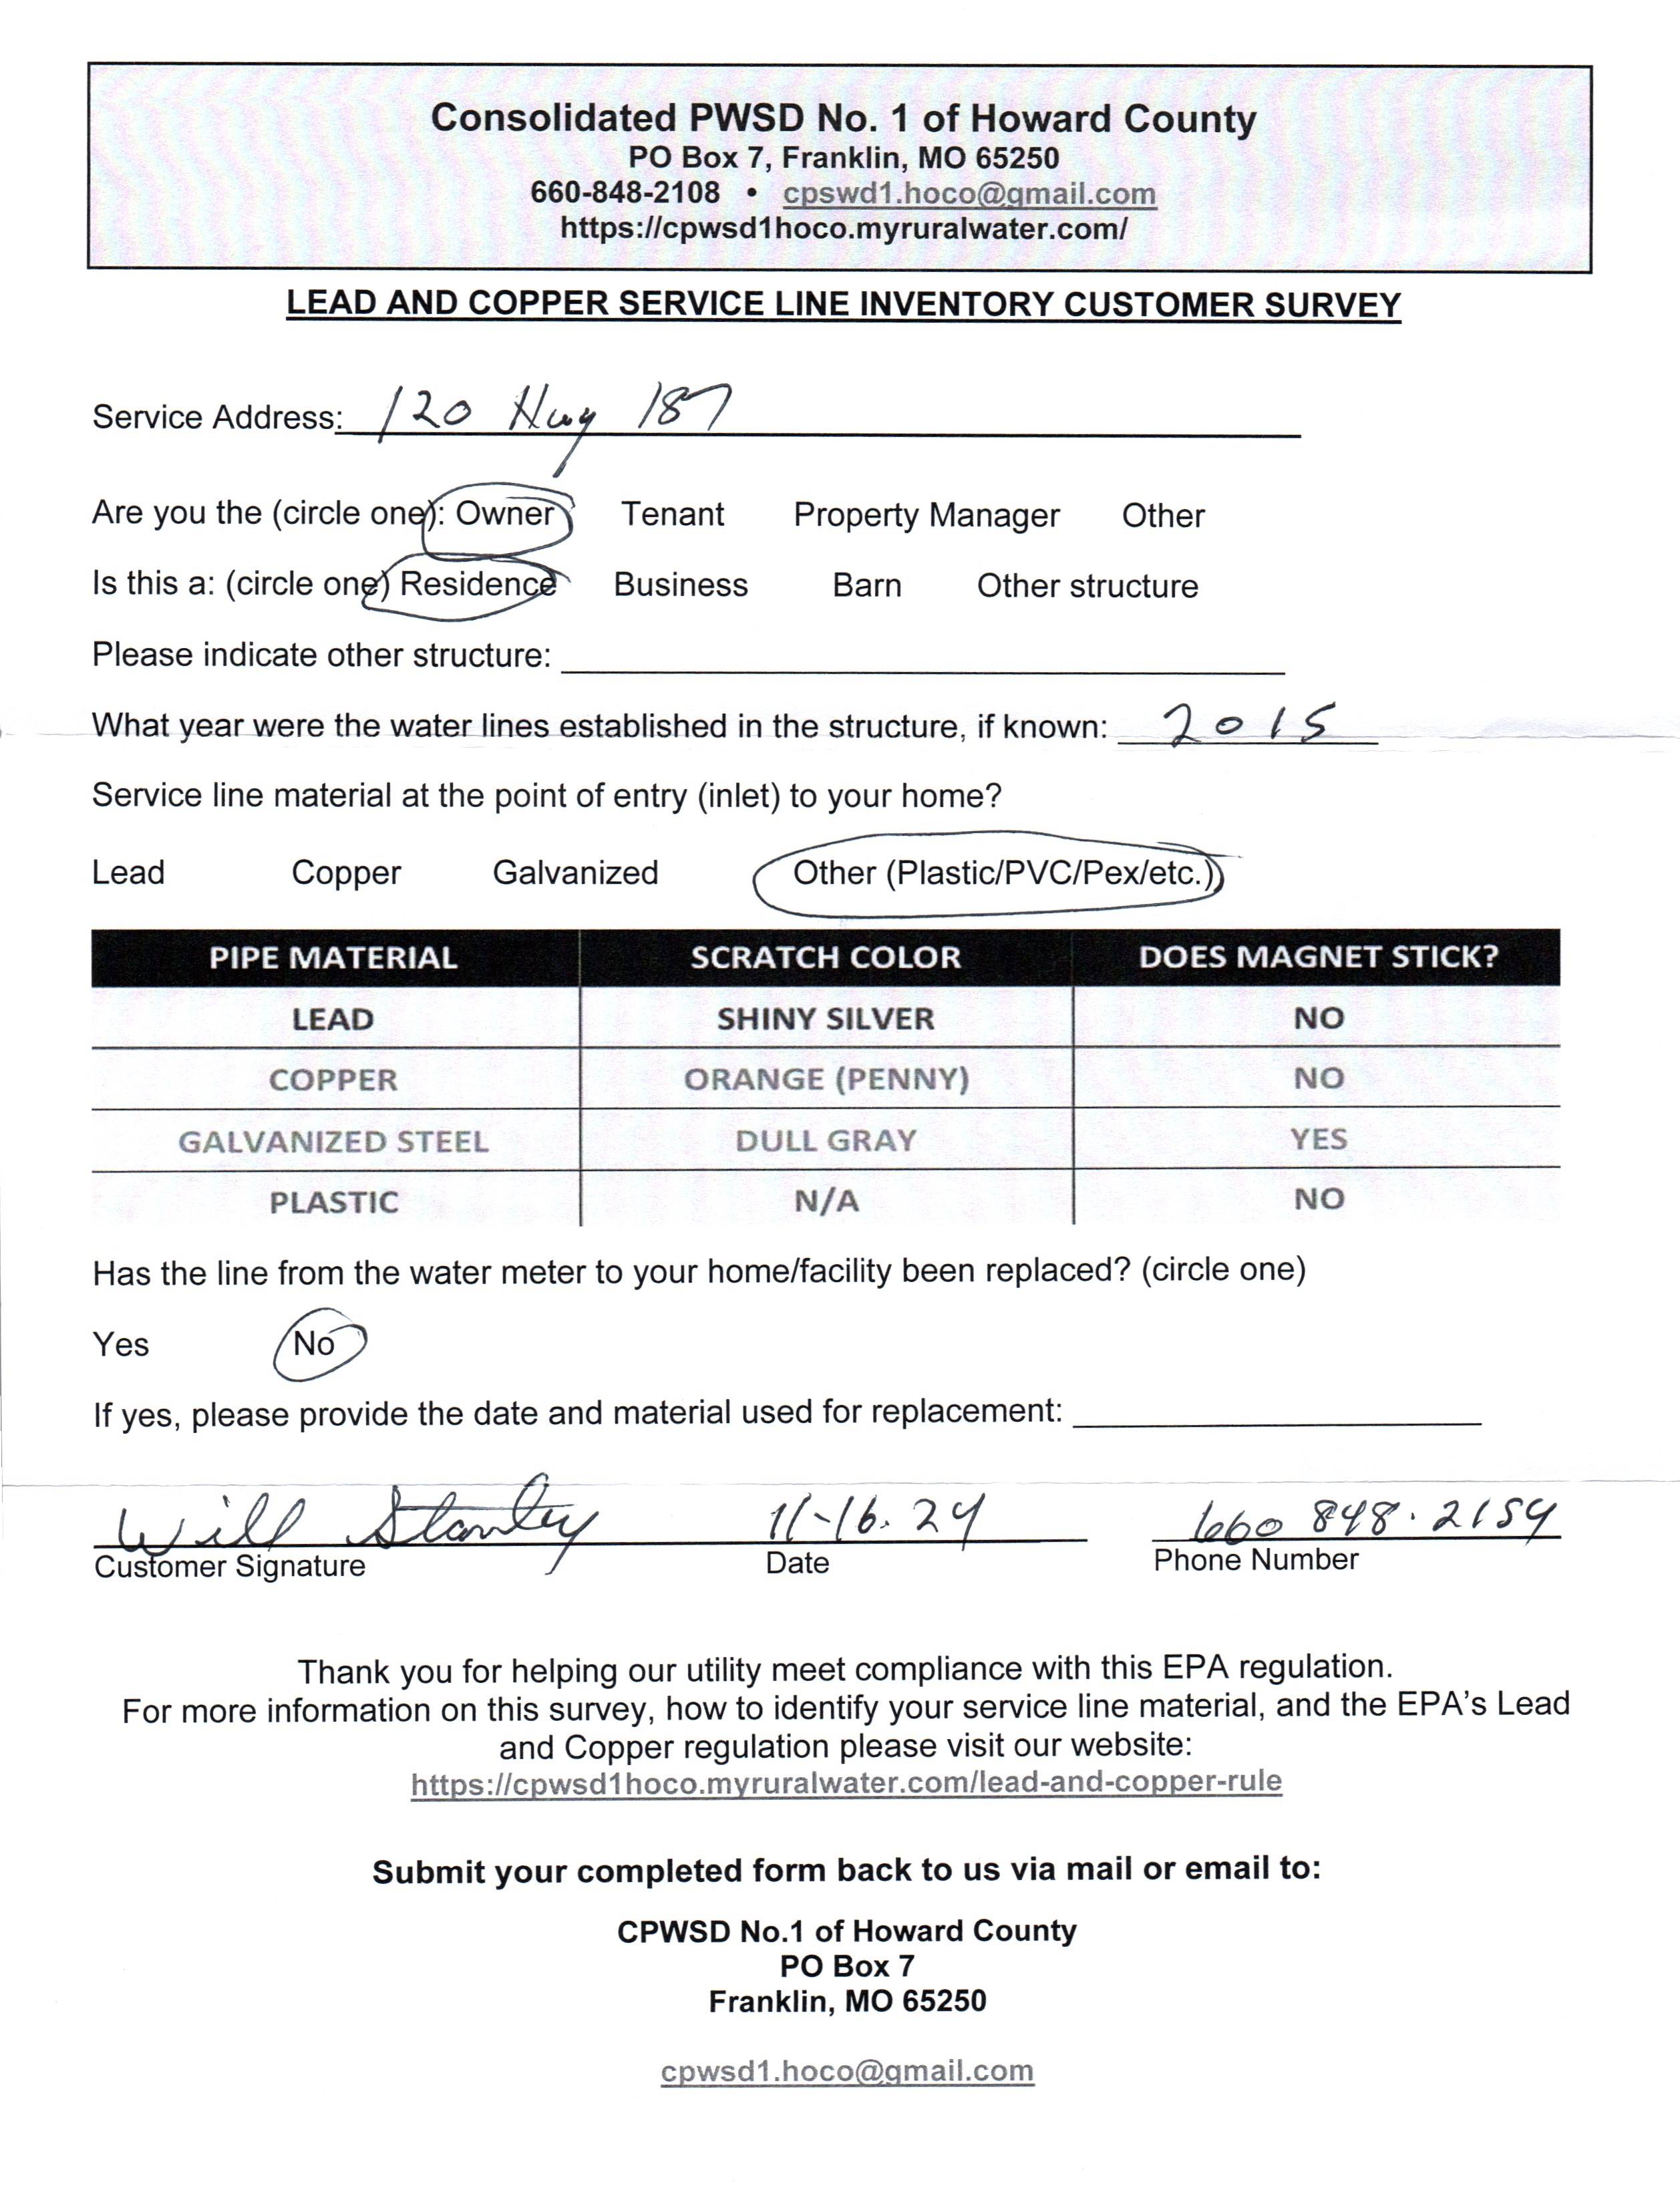 Consolidated PWSD No. 1 of Howard County
PO Box 7, Franklin, MO 65250
660-848-2108 • cpswd1.hoco@gmail.com
https://cpwsd1hoco.myruralwater.com/
LEAD AND COPPER SERVICE LINE INVENTORY CUSTOMER SURVEY
Service Address: 120 Hwy 187
Are you the (circle one): Owner Tenant Property Manager Other
Is this a: (circle one) Residence Business Barn Other structure
Please indicate other structure:
What year were the water lines established in the structure, if known: 2015
Service line material at the point of entry (inlet) to your home?
Lead Copper Galvanized Other (Plastic/PVC/Pex/etc.)
PIPE MATERIAL SCRATCH COLOR DOES MAGNET STICK?
LEAD SHINY SILVER NO
COPPER ORANGE (PENNY) NO
GALVANIZED STEEL DULL GRAY YES
PLASTIC N/A NO
Has the line from the water meter to your home/facility been replaced? (circle one)
Yes No
If yes, please provide the date and material used for replacement:
Will Stanley 11-16.24 660 848.2154
Customer Signature Date Phone Number
Thank you for helping our utility meet compliance with this EPA regulation.
For more information on this survey, how to identify your service line material, and the EPA's Lead
and Copper regulation please visit our website:
https://cpwsd1hoco.myruralwater.com/lead-and-copper-rule
Submit your completed form back to us via mail or email to:
CPWSD No.1 of Howard County
PO Box 7
Franklin, MO 65250
cpwsd1.hoco@gmail.com